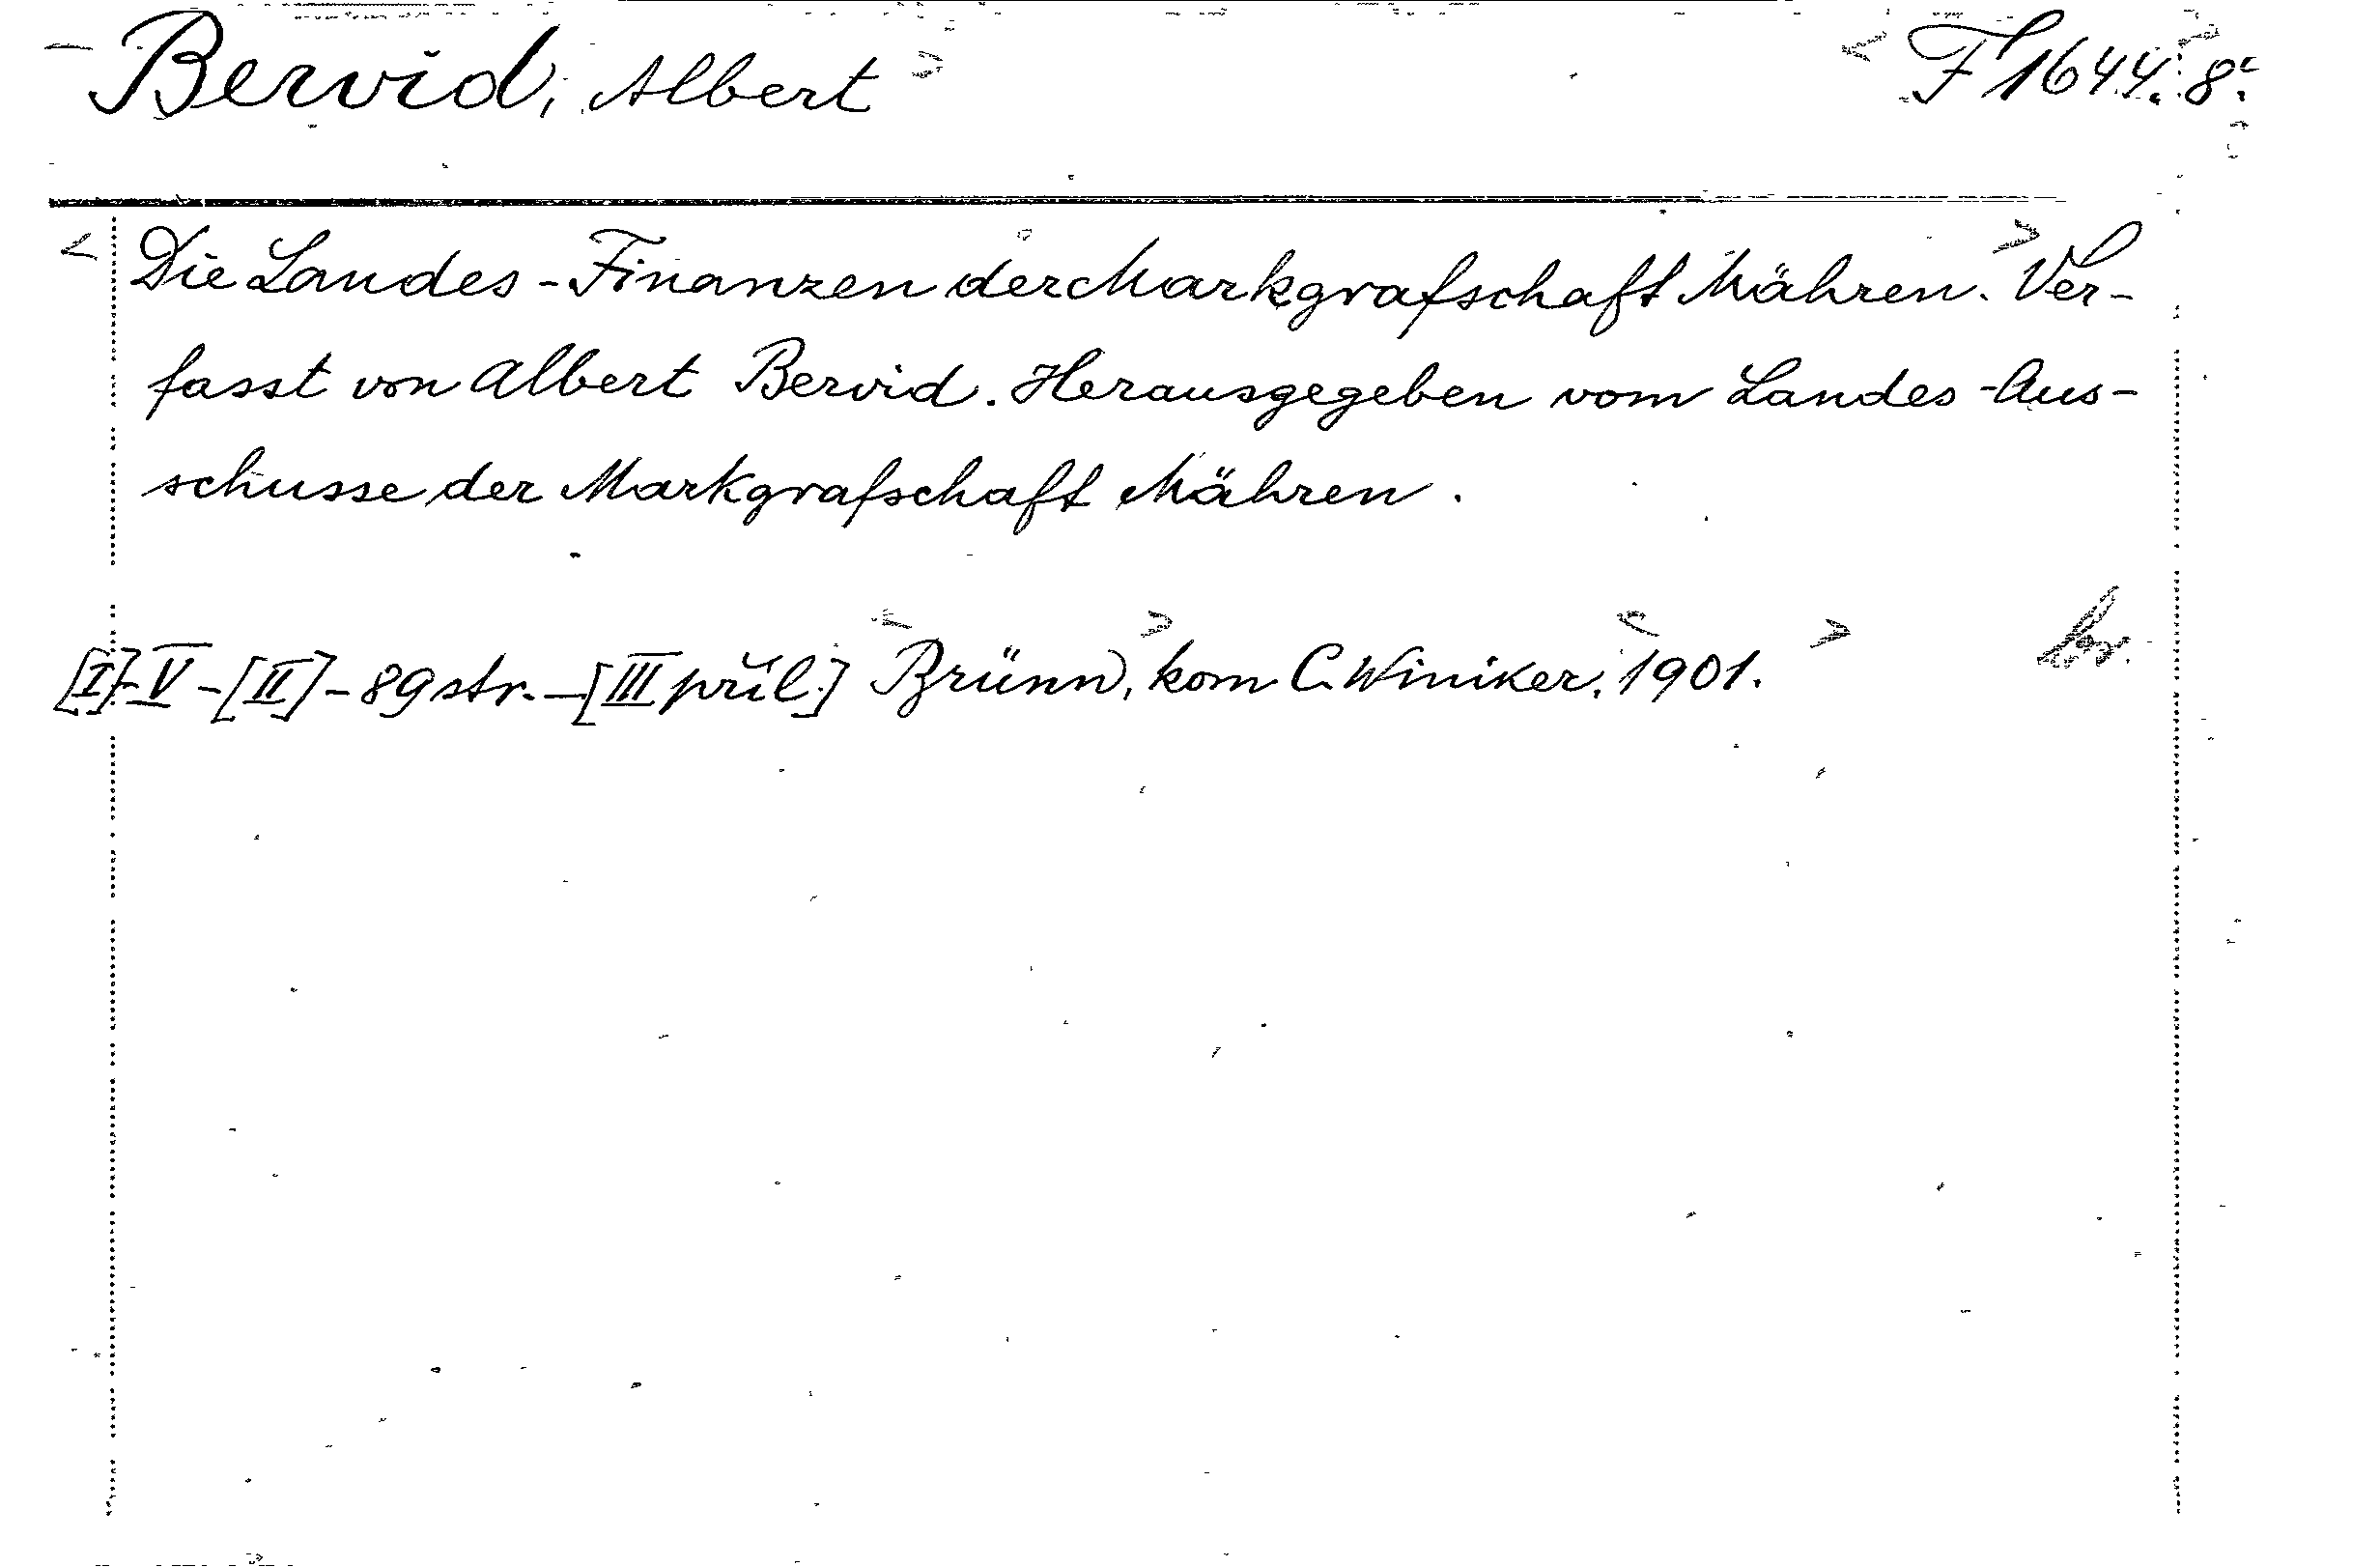 Bervid, Albert
F 1644. 8°
Die Landes-Finanzen der Markgrafschaft Mähren. Ver-
fasst von Albert Bervid. Herausgegeben vom Landes-Aus-
schusse der Markgrafschaft Mähren.
[I]-V-[II]-89 str.-[III příl.] Brünn, kom C. Winiker, 1901.